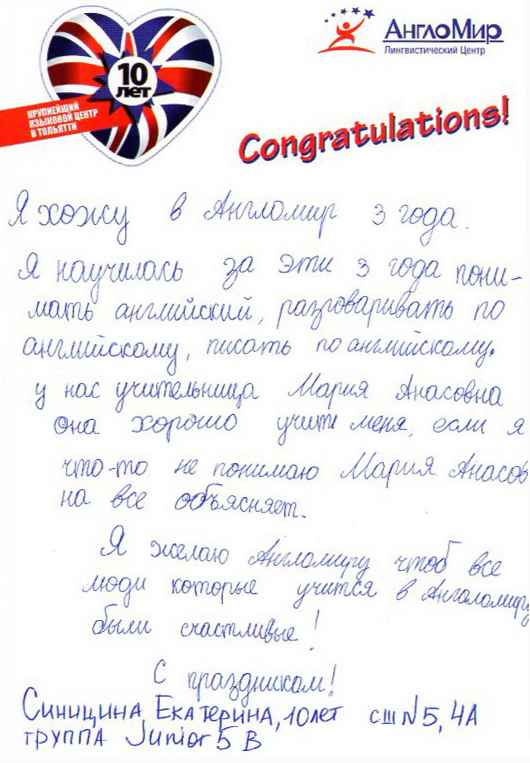 10
лет
КРУПНЕЙШИЙ
ЯЗЫКОВОЙ ЦЕНТР
В ТОЛЬЯТТИ
АнглоМир
Лингвистический Центр
Congratulations!
Я хожу в Англомир 3 года.
Я научилась за эти 3 года пони-
мать английский, разговаривать по
английскому, писать по английскому.
у нас учительница Мария Анасовна
Она хорошо учит меня, если я
что-то не понимаю Мария Анасов
на все объясняет.
Я желаю Англомиру чтоб все
люди которые учится в Англомиру
были счастливые!
С праздником!
Синицина Екатерина, 10 лет сш N5, 4А
группа Junior 5 B